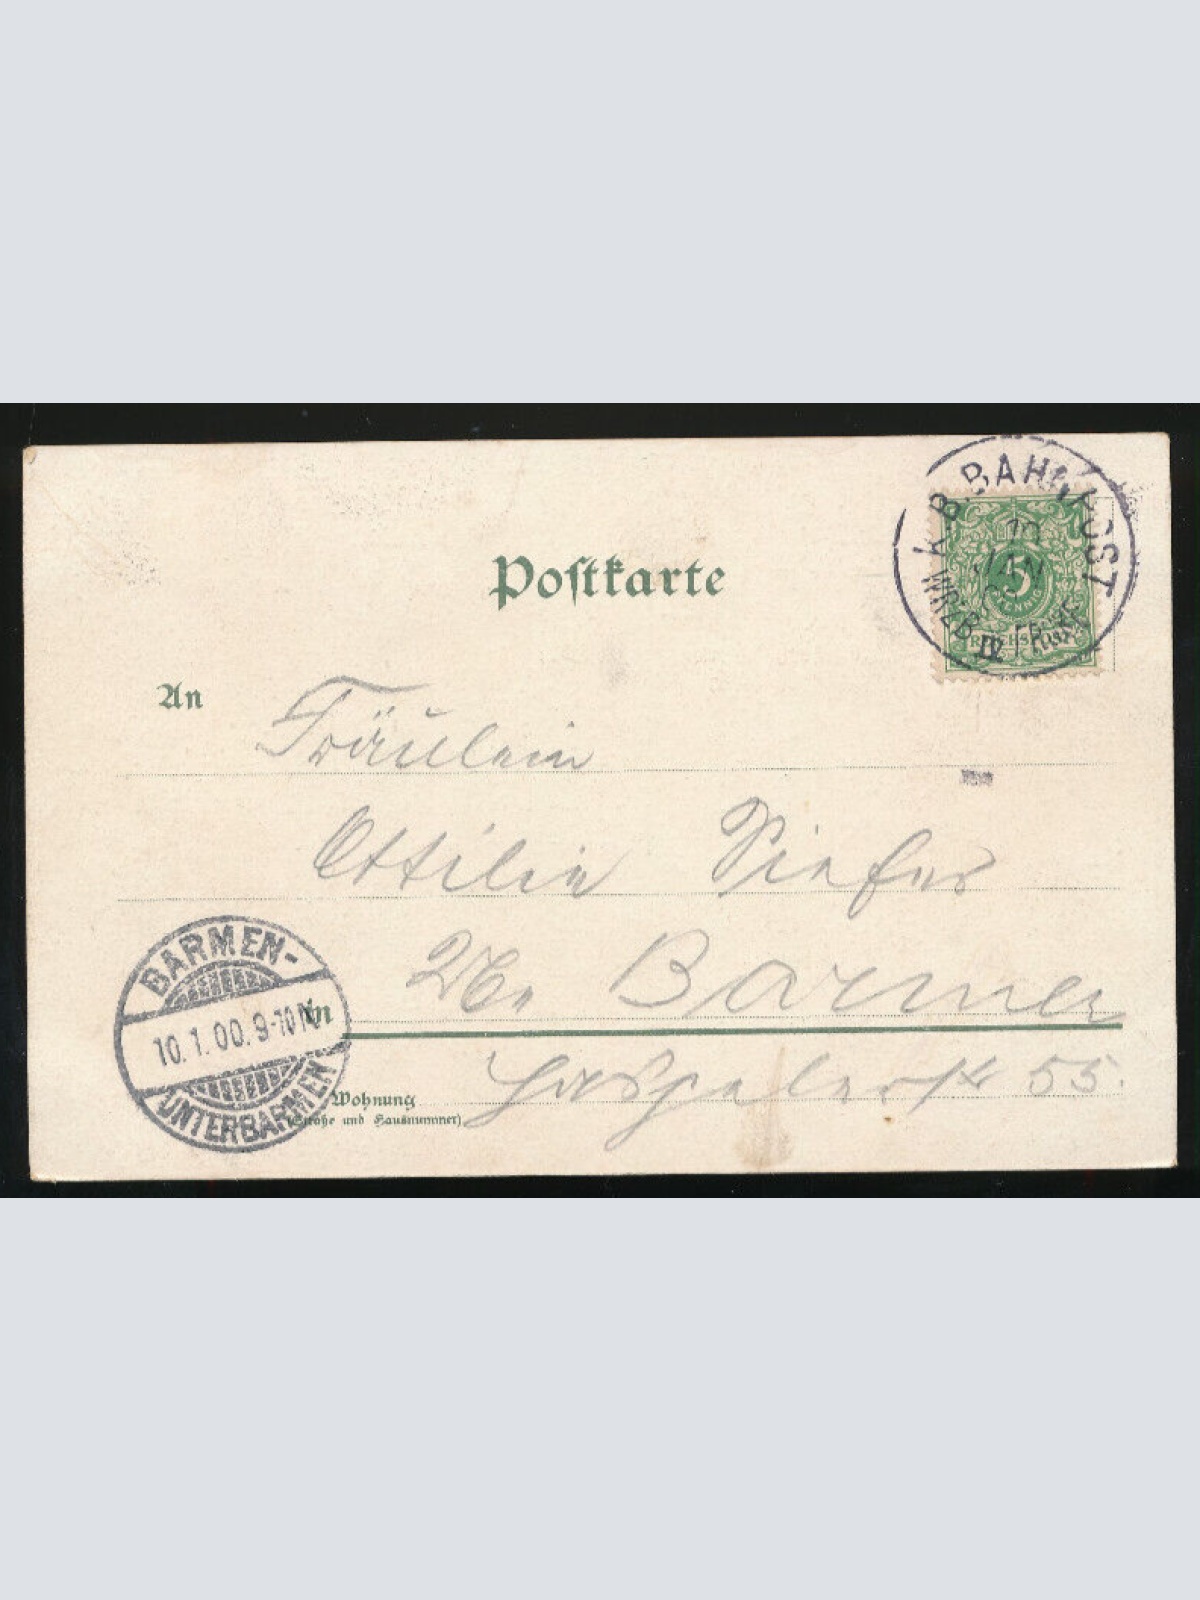 K.B.BAHNPOST
10
JAN
WRZB IV FRKF
5
PFENNIG
REICHSPOST
Postkarte
An
Fräulein
Ottilie Siefer
Barmen
in
55.
Wohnung
(Straße und Hausnummer)
BARMEN-
10.1.00.9-10N
UNTERBARMEN